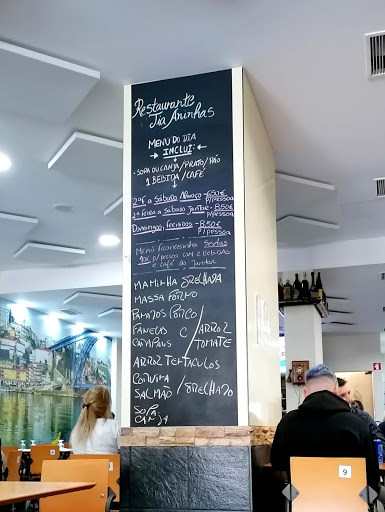 Restaurante
Tia Aninhas
MENU DO DIA
INCLUI:
• SOPA OU CANJA/PRATO/PÃO
1 BEBIDA/CAFÉ
2ª F a SÁBADO Almoço - 6.50€
P/PESSOA
2ª feira a SÁBADO Jantar - 8.50€
P/PESSOA
Domingos, feriados - 8.50€
P/PESSOA
Menú Francesinha Sextas
P/pessoa com 2 Bebidas
e café ao Jantar
MAMINHA GRELHADA
MASSA FORNO
PANADOS PORCO
FANECAS C/ARROZ
CARAPAUS TOMATE
ARROZ TENTACULOS
CORVINA
SALMÃO / GRELHADO
SOPA
CANJA
9